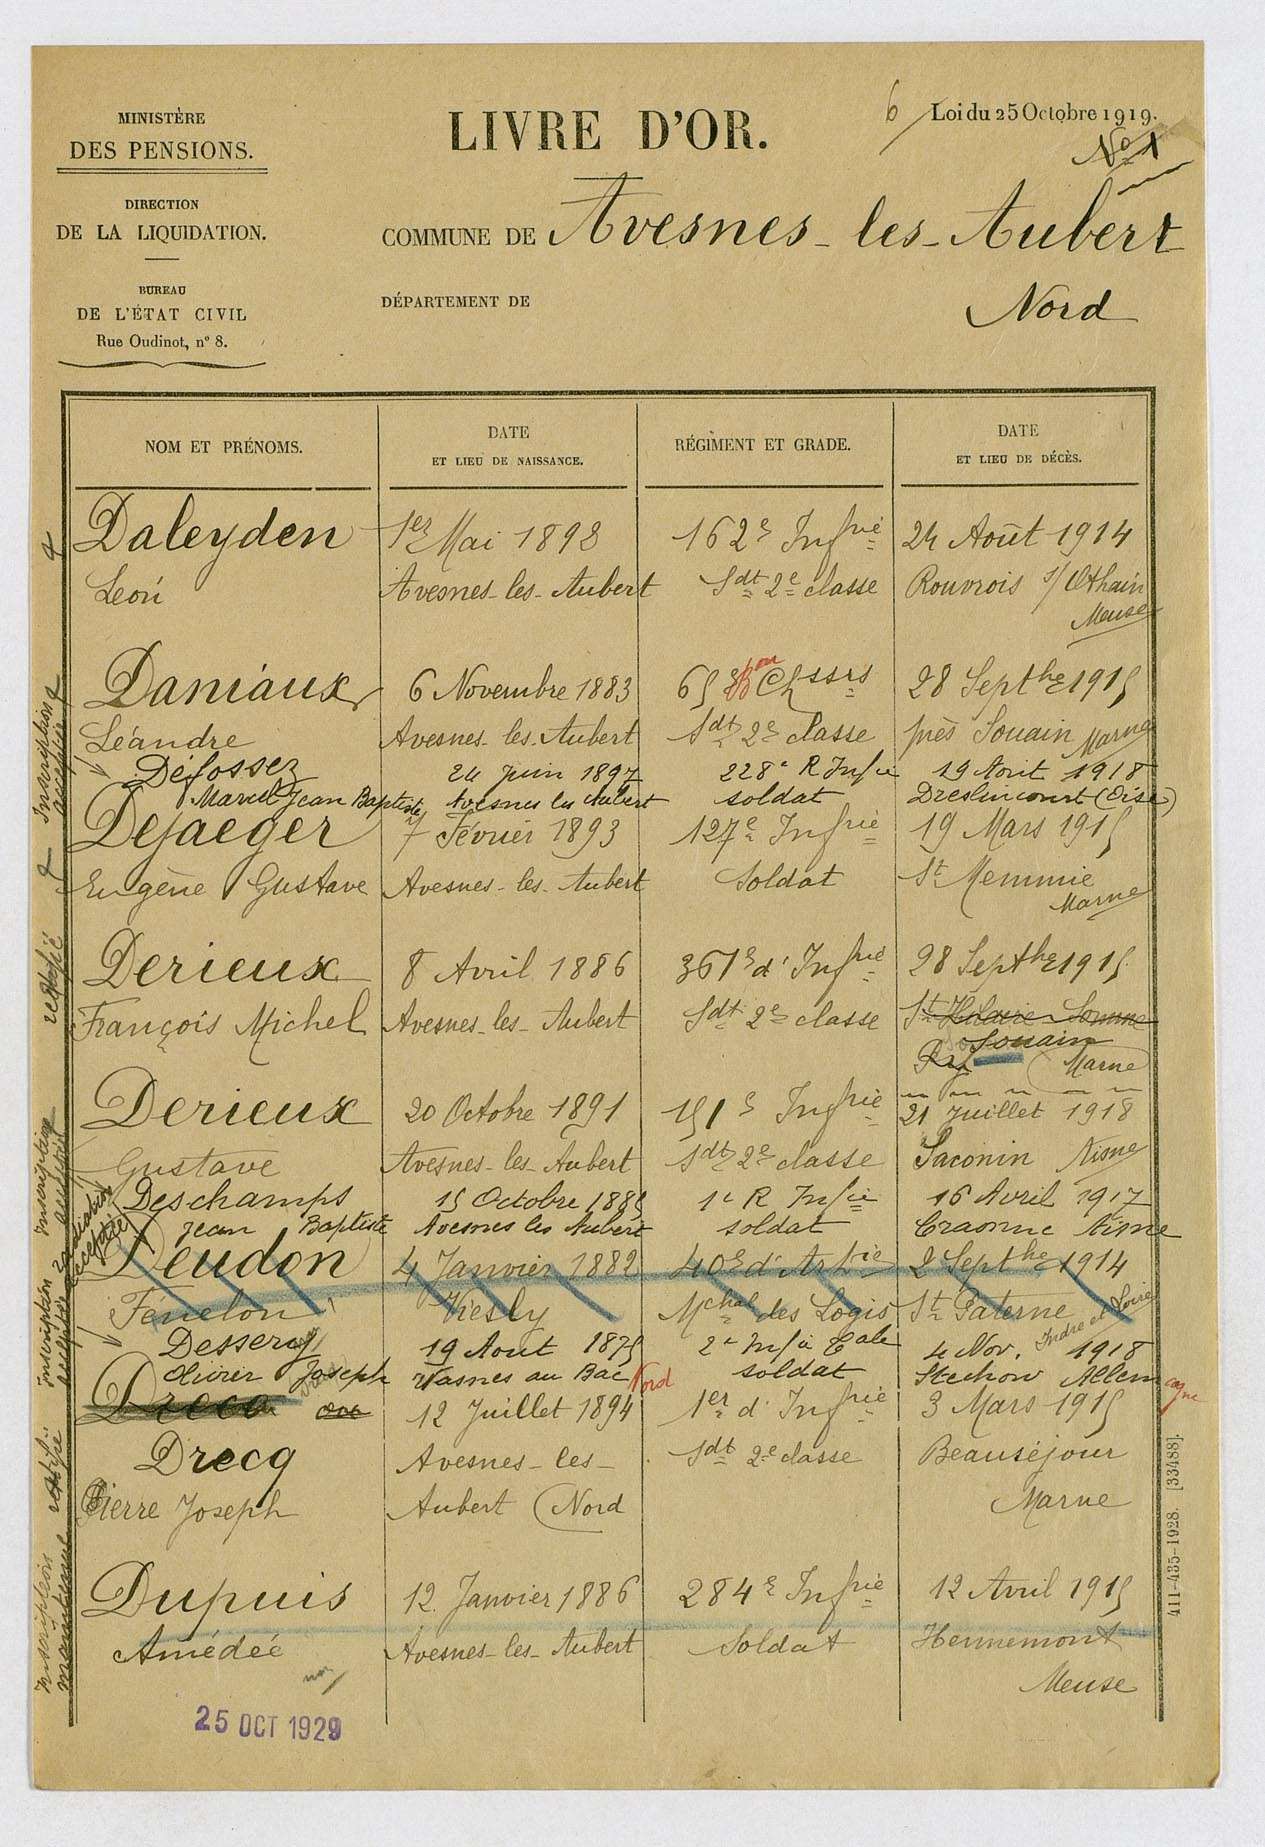 MINISTÈRE
DES PENSIONS.
DIRECTION
DE LA LIQUIDATION.
BUREAU
DE L'ÉTAT CIVIL
Rue Oudinot, n° 8.
LIVRE D'OR.
6
Loi du 25 Octobre 1919.
No 1
COMMUNE DE Avesnes-les-Aubert
DÉPARTEMENT DE Nord
NOM ET PRÉNOMS. DATE ET LIEU DE NAISSANCE. RÉGIMENT ET GRADE. DATE ET LIEU DE DÉCÈS.
Daleyden 1er Mai 1892 162e Infrie 24 Août 1914
Léon Avesnes-les-Aubert Sdt 2e classe Rouvrois s/ Othain
Meuse
Daniaux 6 Novembre 1883 65e Bon Chssrs 28 Septbre 1915
Léandre Avesnes-les-Aubert Sdt 2e classe près Souain Marne
Défossez 24 Juin 1897 228e R Infie 19 Aout 1918
Marcel Jean Baptiste Avesnes les Aubert soldat Dreslincourt (Oise)
Dejaeger 7 Février 1893 127e Infrie 19 Mars 1915
Eugène Gustave Avesnes-les-Aubert Soldat St Memmie
Marne
Derieux 8 Avril 1886 361e d'Infrie 28 Septbre 1915
François Michel Avesnes-les-Aubert Sdt 2e classe St Hilaire Somme
Souain
Marne
Derieux 20 Octobre 1891 151e Infrie 21 Juillet 1918
Gustave Avesnes-les-Aubert Sdt 2e classe Saconin Aisne
Deschamps 15 Octobre 1885 1e R Infie 16 Avril 1917
Jean Baptiste Avesnes les Aubert soldat Craonne Aisne
Deudon 4 Janvier 1882 40e d'Artie 2 Septbre 1914
Fénelon Viesly Mchal des Logis St Paterne
Indre et Loire
Dessery 19 Aout 1875 2e Infie Cale 4 Nov. 1918
Olivier Joseph Wasnes au Bac Nord soldat Stechow Allemagne
Drecq 12 Juillet 1894 1er d'Infrie 3 Mars 1915
Drecq Avesnes-les- Sdt 2e classe Beauséjour
Pierre Joseph Aubert (Nord Marne
Dupuis 12 Janvier 1886 284e Infrie 12 Avril 1915
Amédée Avesnes-les-Aubert Soldat Hennemont
non Meuse
25 OCT 1929
Inscription maintenue
rectifié
Inscription acceptée
radiation acceptée
Inscription acceptée
rectifié
Inscription acceptée
411-435-1928. [33488].